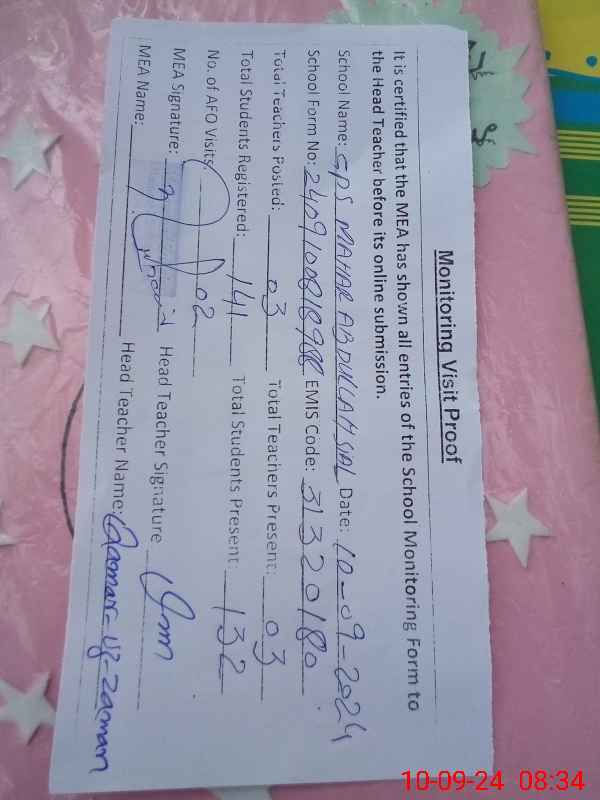 Monitoring Visit Proof
It is certified that the MEA has shown all entries of the School Monitoring Form to
the Head Teacher before its online submission.
School Name: GPS MAHAR ABDULLAH SIAL Date: 10-09-2024
School Form No: EMIS Code: 31320180
Total Teachers Posted: 03 Total Teachers Present: 03
Total Students Registered: 141 Total Students Present: 132
No. of AFO Visits: 02
MEA Signature: Head Teacher Signature
MEA Name: Head Teacher Name: Qaman-uz-zaman
10-09-24 08:34